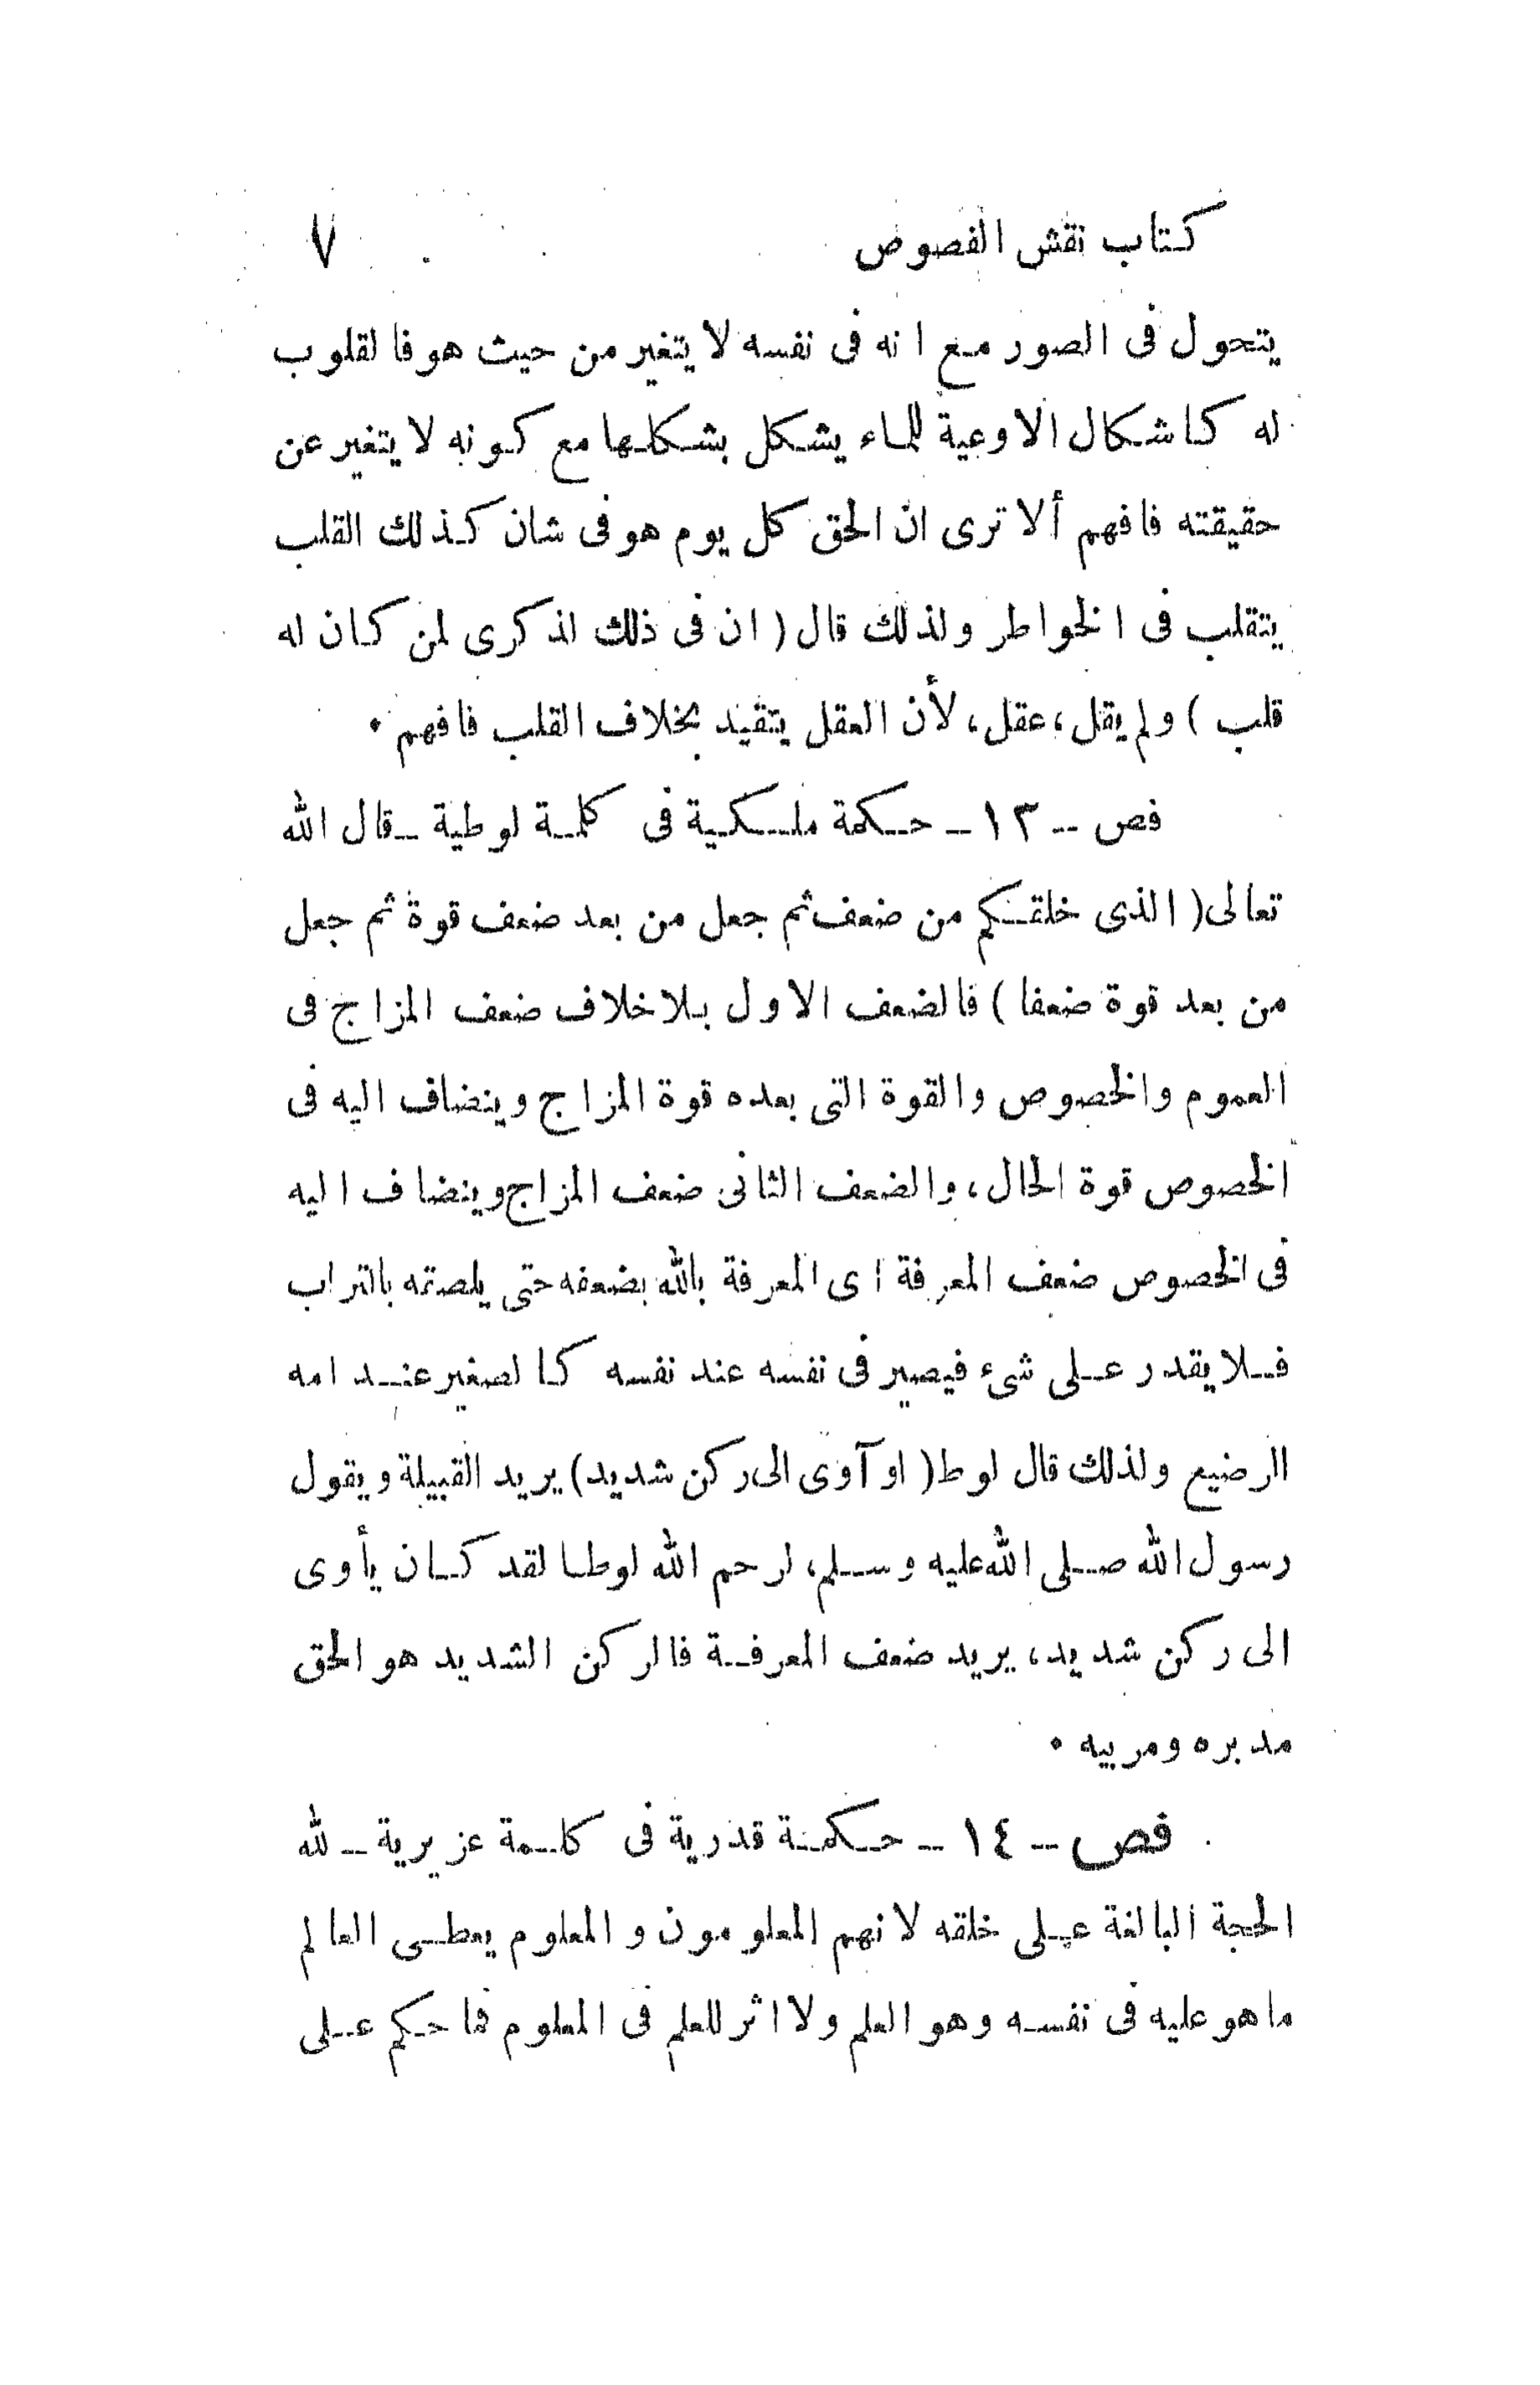 كتاب نقش الفصوص ٧
يتحول فى الصور مع انه فى نفسه لا يتغير من حيث هو فالقلوب
له كاشكال الاوعية للماء يشكل بشكلها مع كونه لا يتغير عن
حقيقته فافهم ألا ترى ان الحق كل يوم هو فى شان كذلك القلب
يتقلب فى الخواطر ولذلك قال ( ان فى ذلك لذكرى لمن كان له
قلب ) ولم يقل، عقل، لأن العقل يتقيد بخلاف القلب فافهم ٠
فص - ١٣ - حكمة ملكية فى كلمة لوطية - قال الله
تعالى ( الذى خلقكم من ضعف ثم جعل من بعد ضعف قوة ثم جعل
من بعد قوة ضعفا ) فالضعف الاول بلا خلاف ضعف المزاج فى
العموم والخصوص والقوة التى بعده قوة المزاج وينضاف اليه فى
الخصوص قوة الحال، والضعف الثانى ضعف المزاج وينضاف اليه
فى الخصوص ضعف المعرفة اى المعرفة بالله بضعفه حتى يلصقه بالتراب
فلا يقدر على شىء فيصير فى نفسه عند نفسه كالصغير عند امه
الرضيع ولذلك قال لوط ( او آوى الى ركن شديد ) يريد القبيلة ويقول
رسول الله صلى الله عليه وسلم، لرحم الله لوطا لقد كان يأوى
الى ركن شديد، يريد ضعف المعرفة فالركن الشديد هو الحق
مدبره ومربيه ٠
فص - ١٤ - حكمة قدرية فى كلمة عزيرية - لله
الحجة البالغة على خلقه لانهم المعلومون والمعلوم يعطى العالم
ما هو عليه فى نفسه وهو العلم ولا اثر للعلم فى المعلوم فما حكم على